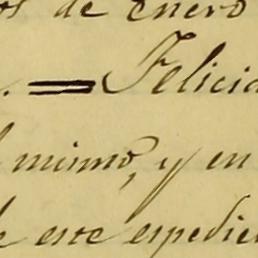 os de enero
. = Felicia
l mismo, y en
de este espedie